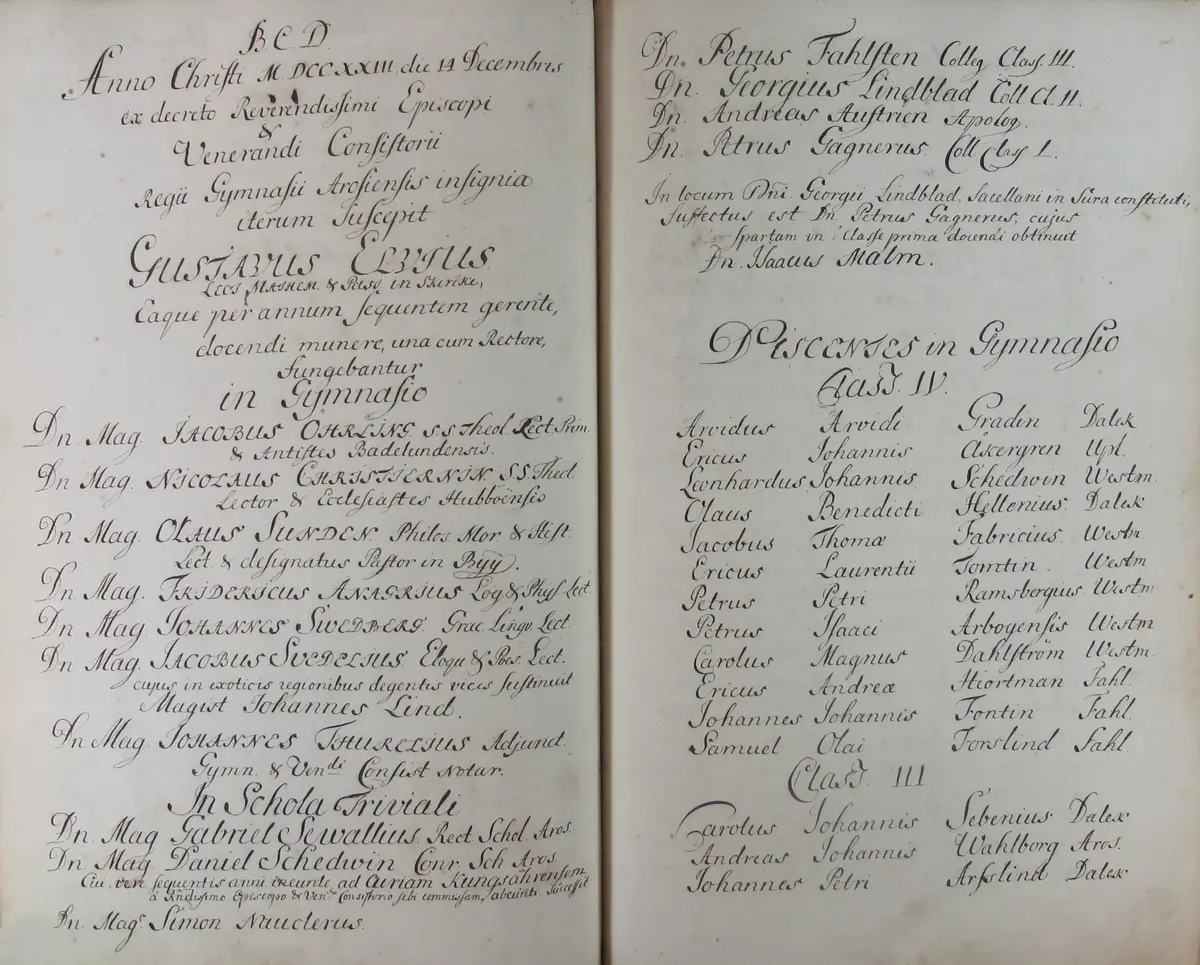 B. C. D.
Anno Christi MDCCXXIII, die 14 Decembris
ex decreto Reverendissimi Episcopi
&
Venerandi Consistorii
Regii Gymnasii Arosiensis insignia
iterum suscepit
GUSTAVUS ELVIUS
Lect. Mathem. & Past. in Skerike,
Eaque per annum sequentem gerente,
docendi munere, una cum Rectore,
fungebantur
in Gymnasio
Dn. Mag. JACOBUS ÖHRLING S.S. Theol. Lect. Prim.
& Antistes Badelundensis.
Dn. Mag. NICOLAUS CHRISTIERNIN S.S. Theol.
Lector & Ecclesiastes Hubboënsis
Dn. Mag. OLAUS SUNDEN Philos. Mor. & Hist.
Lect. & designatus Pastor in Byÿ.
Dn. Mag. FRIDERICUS ANAGRIUS Log. & Phys. Lect.
Dn. Mag. JOHANNES SWEDBERG. Græc. Lingv. Lect.
Dn. Mag. JACOBUS SVEDELIUS. Eloqu. & Poës. Lect.
cujus in exoticis regionibus degentis vices sustinuit
Magist. Johannes Lind.
Dn. Mag. JOHANNES THURELIUS Adjunct.
Gymn. & Ven:di Consist. Notar.
In Schola Triviali
Dn. Mag Gabriel Sewallius. Rect. Schol. Aros.
Dn. Mag. Daniel Schedwin Conr. Sch. Aros.
Cui, vere sequentis anni ineunte, ad Curiam Kungsåhrensem
à Rndissimo Episcopo & Ven: Consistorio sibi commissam, abeunti successit
Dn. Mag:r Simon Nauclerus.
Dn. Petrus Fahlsten Colleg. Class. III.
Dn. Georgius Lindblad Coll. Cl. II.
Dn. Andreas Austrien Apolog.
Dn. Petrus Gagnerus. Coll. Class I.
In locum Dni. Georgii Lindblad, Sacellani in Sura constituti,
suffectus est Dn. Petrus Gagnerus, cujus
spartam in Classe prima docendi obtinuit
Dn. Isaacus Malm.
DISCENTES in Gymnasio
Class. IV.
Arvidus Arvidi Gradin Dalek
Ericus Johannis Åkergren Upl.
Leonhardus Johannis Schedwin Westm.
Olaus Benedicti Hellenius. Dalek
Jacobus Thomæ Fabricius. Westm.
Ericus Laurentii Tomtin. Westm
Petrus Petri Ramsbergius. Westm
Petrus Isaaci Arbogensis Westm
Carolus Magnus Dahlström Westm.
Ericus Andreæ Hiortman Fahl.
Johannes Johannis Fontin Fahl.
Samuel Olai Forslind Fahl.
Class. III
Carolus Johannis Sebenius Dalek
Andreas Johannis Wahlborg Aros.
Johannes Petri Dalek